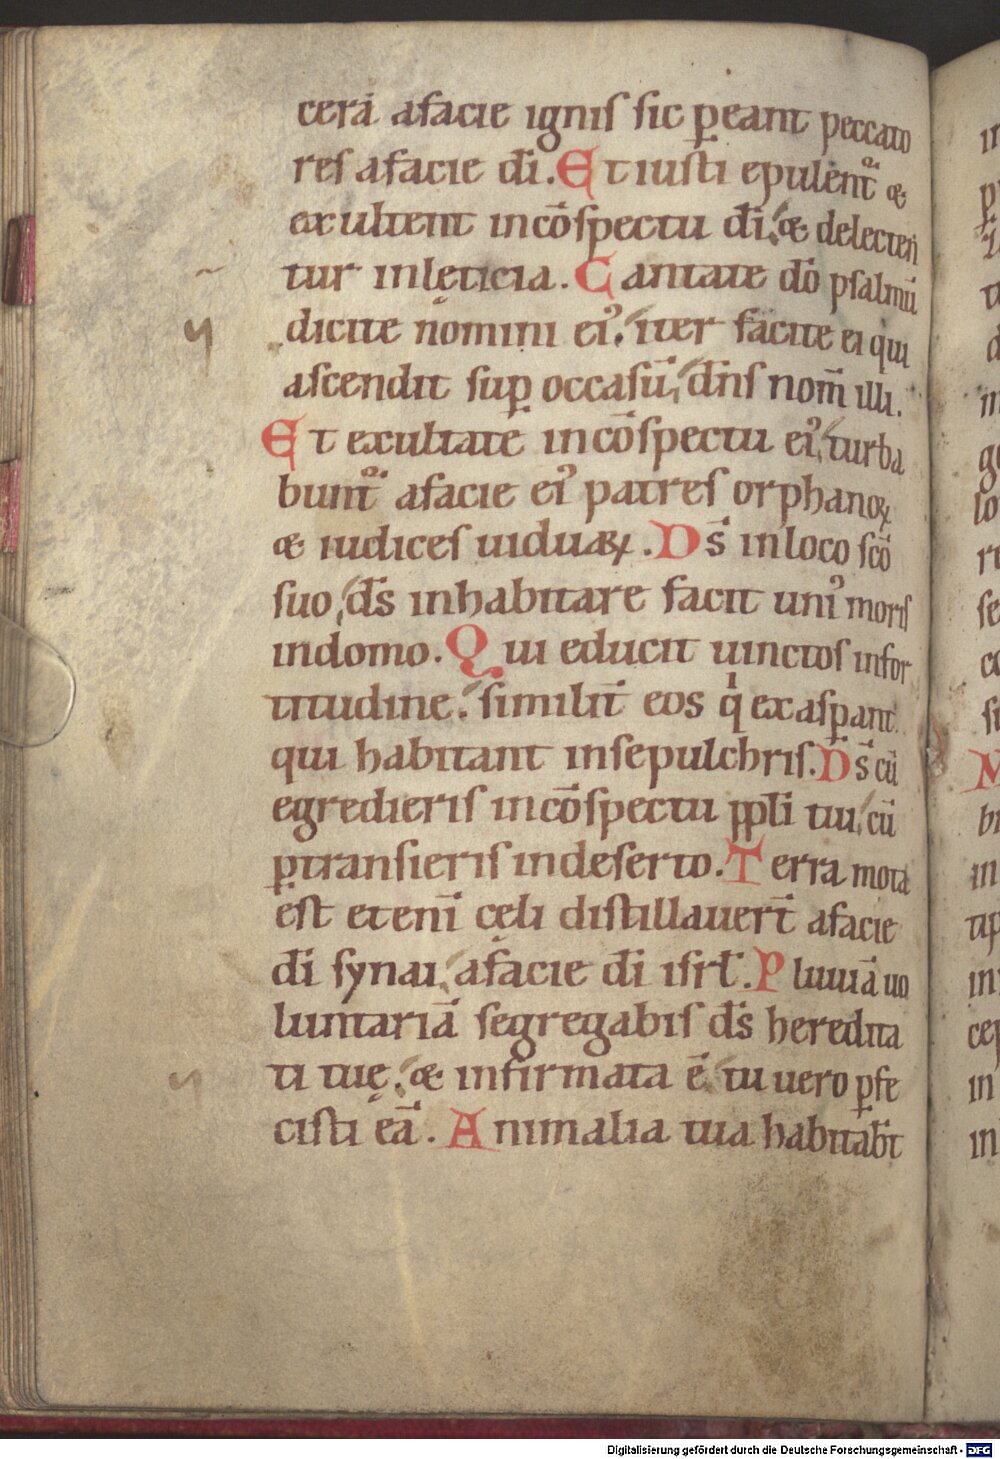 cerā afacie ignis sic ꝑeant peccato
res afacie dī. Et iusti epulent᷑ &
exultent incōspectu dī, & delecten
tur inlęticia. Cantate dō psalmū
dicite nomini ei᷒, iter facite ei qui
ascendit suꝑ occasū, dn̄s nom̄ illi.
Et exultate incōspectu ei᷒, turba
bunt᷑ afacie ei᷒ patres orphanoꝝ
& iudices uiduaꝝ. Ds̄ inloco scō
suo, ds̄ inhabitare facit uni᷒ moris
indomo. Qui educit uinctos infor
titudine. similit̄ eos qͥ exasꝑant
qui habitant insepulchris. Ds̄ cū
egredieris incōspectu ppl̄i tui, cū
ꝑtransieris indeserto. Terra mota
est eteni̅ cęli distillauer̄t afacie
dī synai, afacie dī isrl̄. Pluuiā uo
luntariā segregabis ds̄ heredita
ti tuę. & infirmata ē, tu uero ꝑfe
cisti eā. Animalia tua habitab̄t
Digitalisierung gefördert durch die Deutsche Forschungsgemeinschaft - DFG